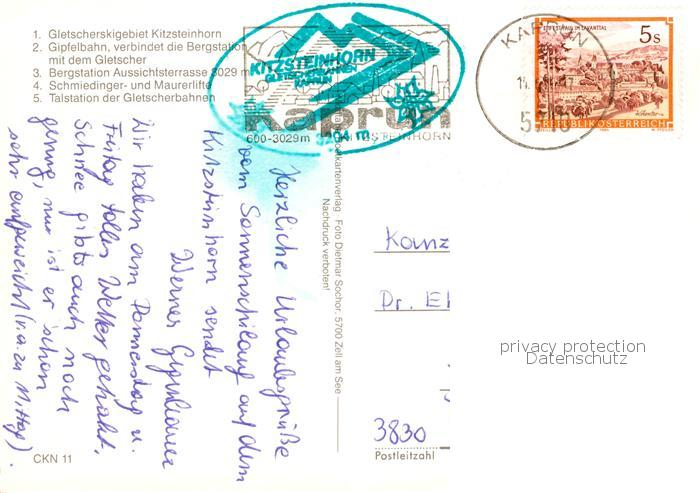 1. Gletscherskigebiet Kitzsteinhorn
2. Gipfelbahn, verbindet die Bergstation
mit dem Gletscher
3. Bergstation Aussichtsterrasse 3029 m
4. Schmiedinger- und Maurerlifte
5. Talstation der Gletscherbahnen
KITZSTEINHORN
GLETSCHERBAHNEN
KAPRUN
3204 m
Kaprun
600-3029m KITZSTEINHORN
KAPRUN
ST. PAUL IM LAVANTTAL
5s
REPUBLIK ÖSTERREICH
Herzliche Urlaubsgrüße
vom Sonnenschilauf auf dem
Kitzsteinhorn sendet
Werner
Wir haben am Donnerstag u.
Freitag tolles Wetter gehabt,
Schnee gibts auch noch
genug, nur ist er schon
sehr aufgeweicht (v.a. zu Mittag).
Foto Dietmar Sochor, 5700 Zell am See
Nachdruck verboten!
Kainz
Dr. El
3830
Postleitzahl
CKN 11
privacy protection
Datenschutz